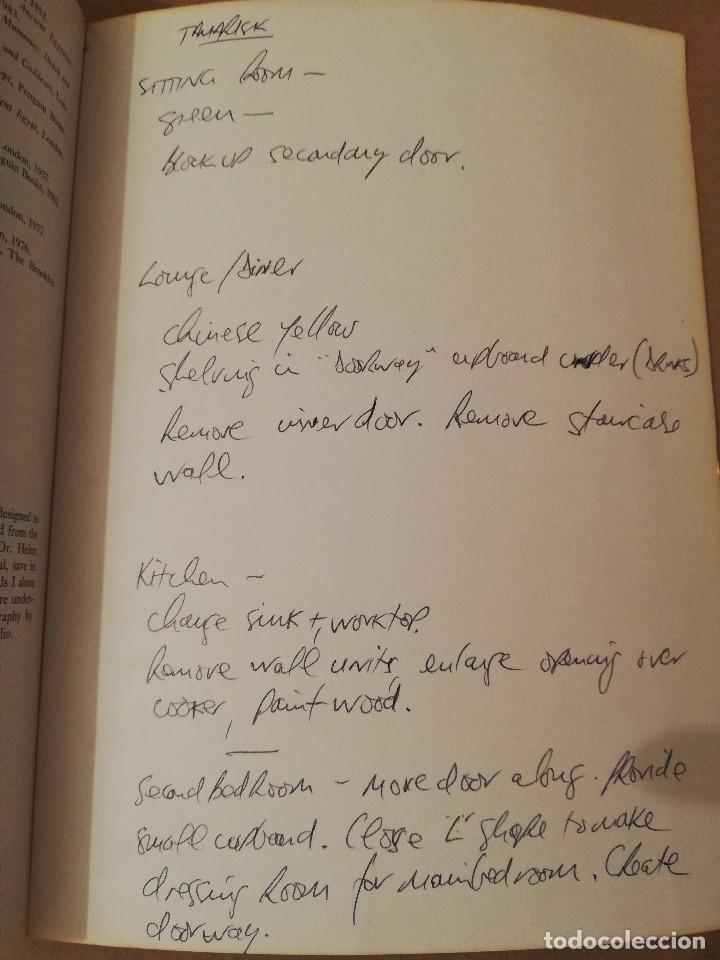 1982.
Ancient Egyptian
1983.
Mummies: Death and
and Goddesses, Lon-
Penguin Books,
Egypt, London,
London, 1937.
guin Books, 1961.
London, 1977.
1976.
The Brooklyn
designed to
d from the
Dr. Helen
ul, save in
ds I alone
re under-
graphy by
dio.
TAMARISK
SITTING ROOM –
green –
Block up secondary door.
Lounge / Diner
Chinese yellow
Shelving in "Doorway" cupboard under (DRINKS)
Remove inner door. Remove staircase
wall.
Kitchen –
Change sink +, worktop.
Remove wall units, enlarge opening over
cooker, paint wood.
Second BedRoom – move door along. Provide
small cupboard. Close 'L' shape to make
dressing Room for main bedroom. Create
doorway.
todocoleccion.net